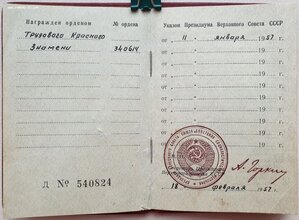 Награжден орденом № ордена
Трудового Красного
Знамени 340614
Д № 540824
Указом Президиума Верховного Совета СССР
от 11 января 1957
от 19
от 19
от 19
от 19
от 19
от 19
от 19
А. Горкин
18 февраля 1957 г.